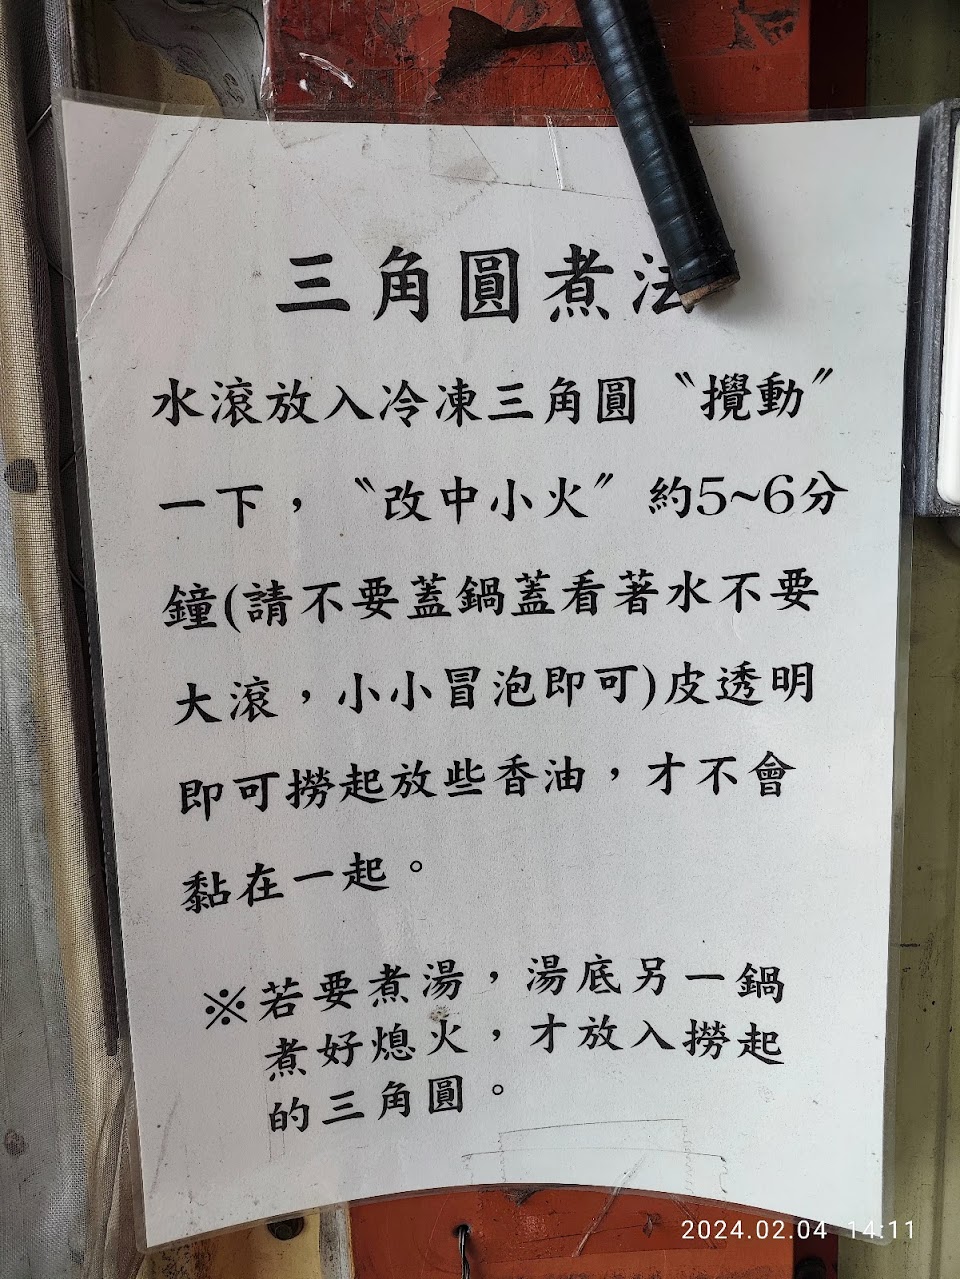 三角圓煮法
水滾放入冷凍三角圓〝攪動〞
一下，〝改中小火〞約5~6分
鐘(請不要蓋鍋蓋看著水不要
大滾，小小冒泡即可)皮透明
即可撈起放些香油，才不會
黏在一起。
※若要煮湯，湯底另一鍋
煮好熄火，才放入撈起
的三角圓。
2024.02.04 14:11